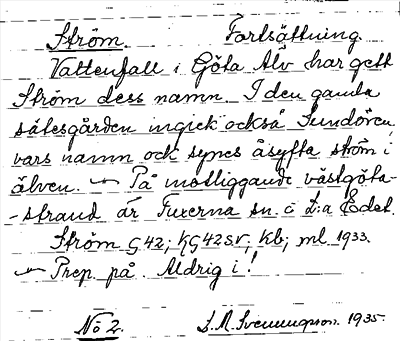 Ström. Fortsättning.
Vattenfall i Göta Älv har gett
Ström dess namn. I den gamla
sätesgården ingick också Sundören
vars namn ock synes åsyfta ström i
älven. — På motliggande västgöta-
-strand är Fuxerna sn. o L:a Edet.
Ström G42; KG42SV; Kb; ml 1933.
— Prep. på. Aldrig i!
No 2. S.M. Svenungson. 1935.